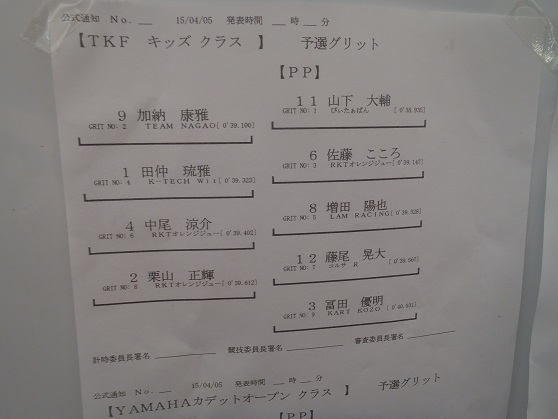 公式通知 No.__ 15/04/05 発表時間 __時__分
【TKF キッズ クラス 】 予選グリット
【PP】
11 山下 大輔
GRIT NO: 1 ぴぃたぁぱん
9 加納 康雅
GRIT NO: 2 TEAM NAGAO[ 0'39.100]
6 佐藤 こころ
GRIT NO: 3 RKTオレンジジュー[ 0'39.147]
1 田仲 琉雅
GRIT NO: 4 K-TECH Wit[ 0'39.323]
8 増田 陽也
GRIT NO: 5 LAM RACING[ 0'39.328]
4 中尾 涼介
GRIT NO: 6 RKTオレンジジュー[ 0'39.402]
12 藤尾 晃大
GRIT NO: 7 コルサ R
2 栗山 正輝
GRIT NO: 8 RKTオレンジジュー[ 0'39.612]
3 冨田 優明
GRIT NO: 9 KART KOZO
計時委員長署名 ________ 競技委員長署名 ________ 審査委員長署名 ________
公式通知 No.__ 15/04/05 発表時間 __時__分
【YAMAHAカデットオープン クラス 】 予選グリット
【PP】